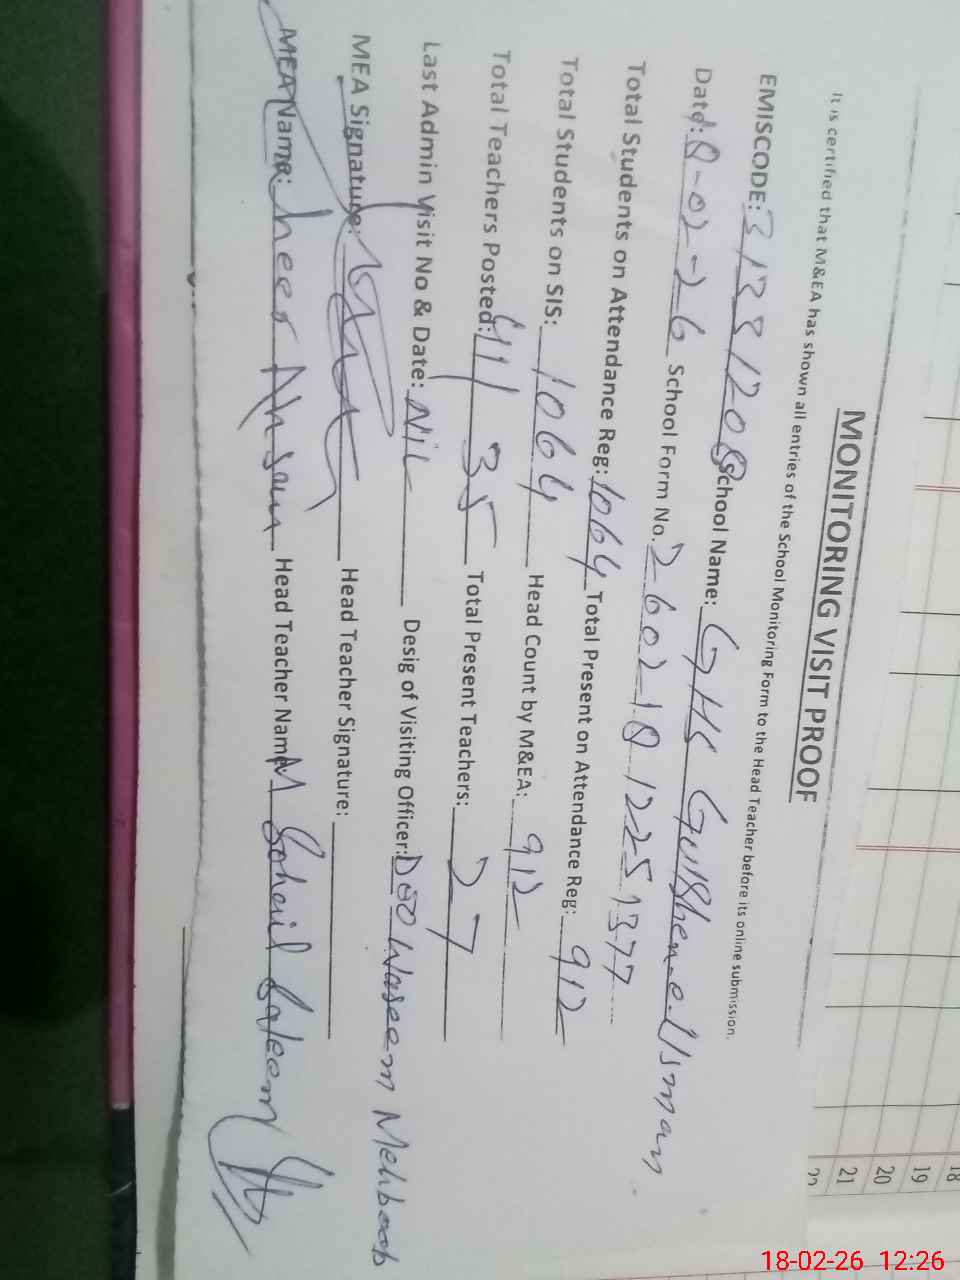 MONITORING VISIT PROOF
It is certified that M&EA has shown all entries of the School Monitoring Form to the Head Teacher before its online submission.
EMISCODE: School Name: GHS Gulshen.e.Usman
Date: 18-02-26 School Form No. 2602181225
Total Students on Attendance Reg: 1064 Total Present on Attendance Reg: 912
Total Students on SIS: 1064 Head Count by M&EA: 912
Total Teachers Posted: 35 Total Present Teachers: 27
Last Admin Visit No & Date: Nil Desig of Visiting Officer: Waseem Mehboob
MEA Signature: Head Teacher Signature:
MEA Name: Head Teacher Name: M Sohail Saleem
18
19
20
21
22
18-02-26 12:26